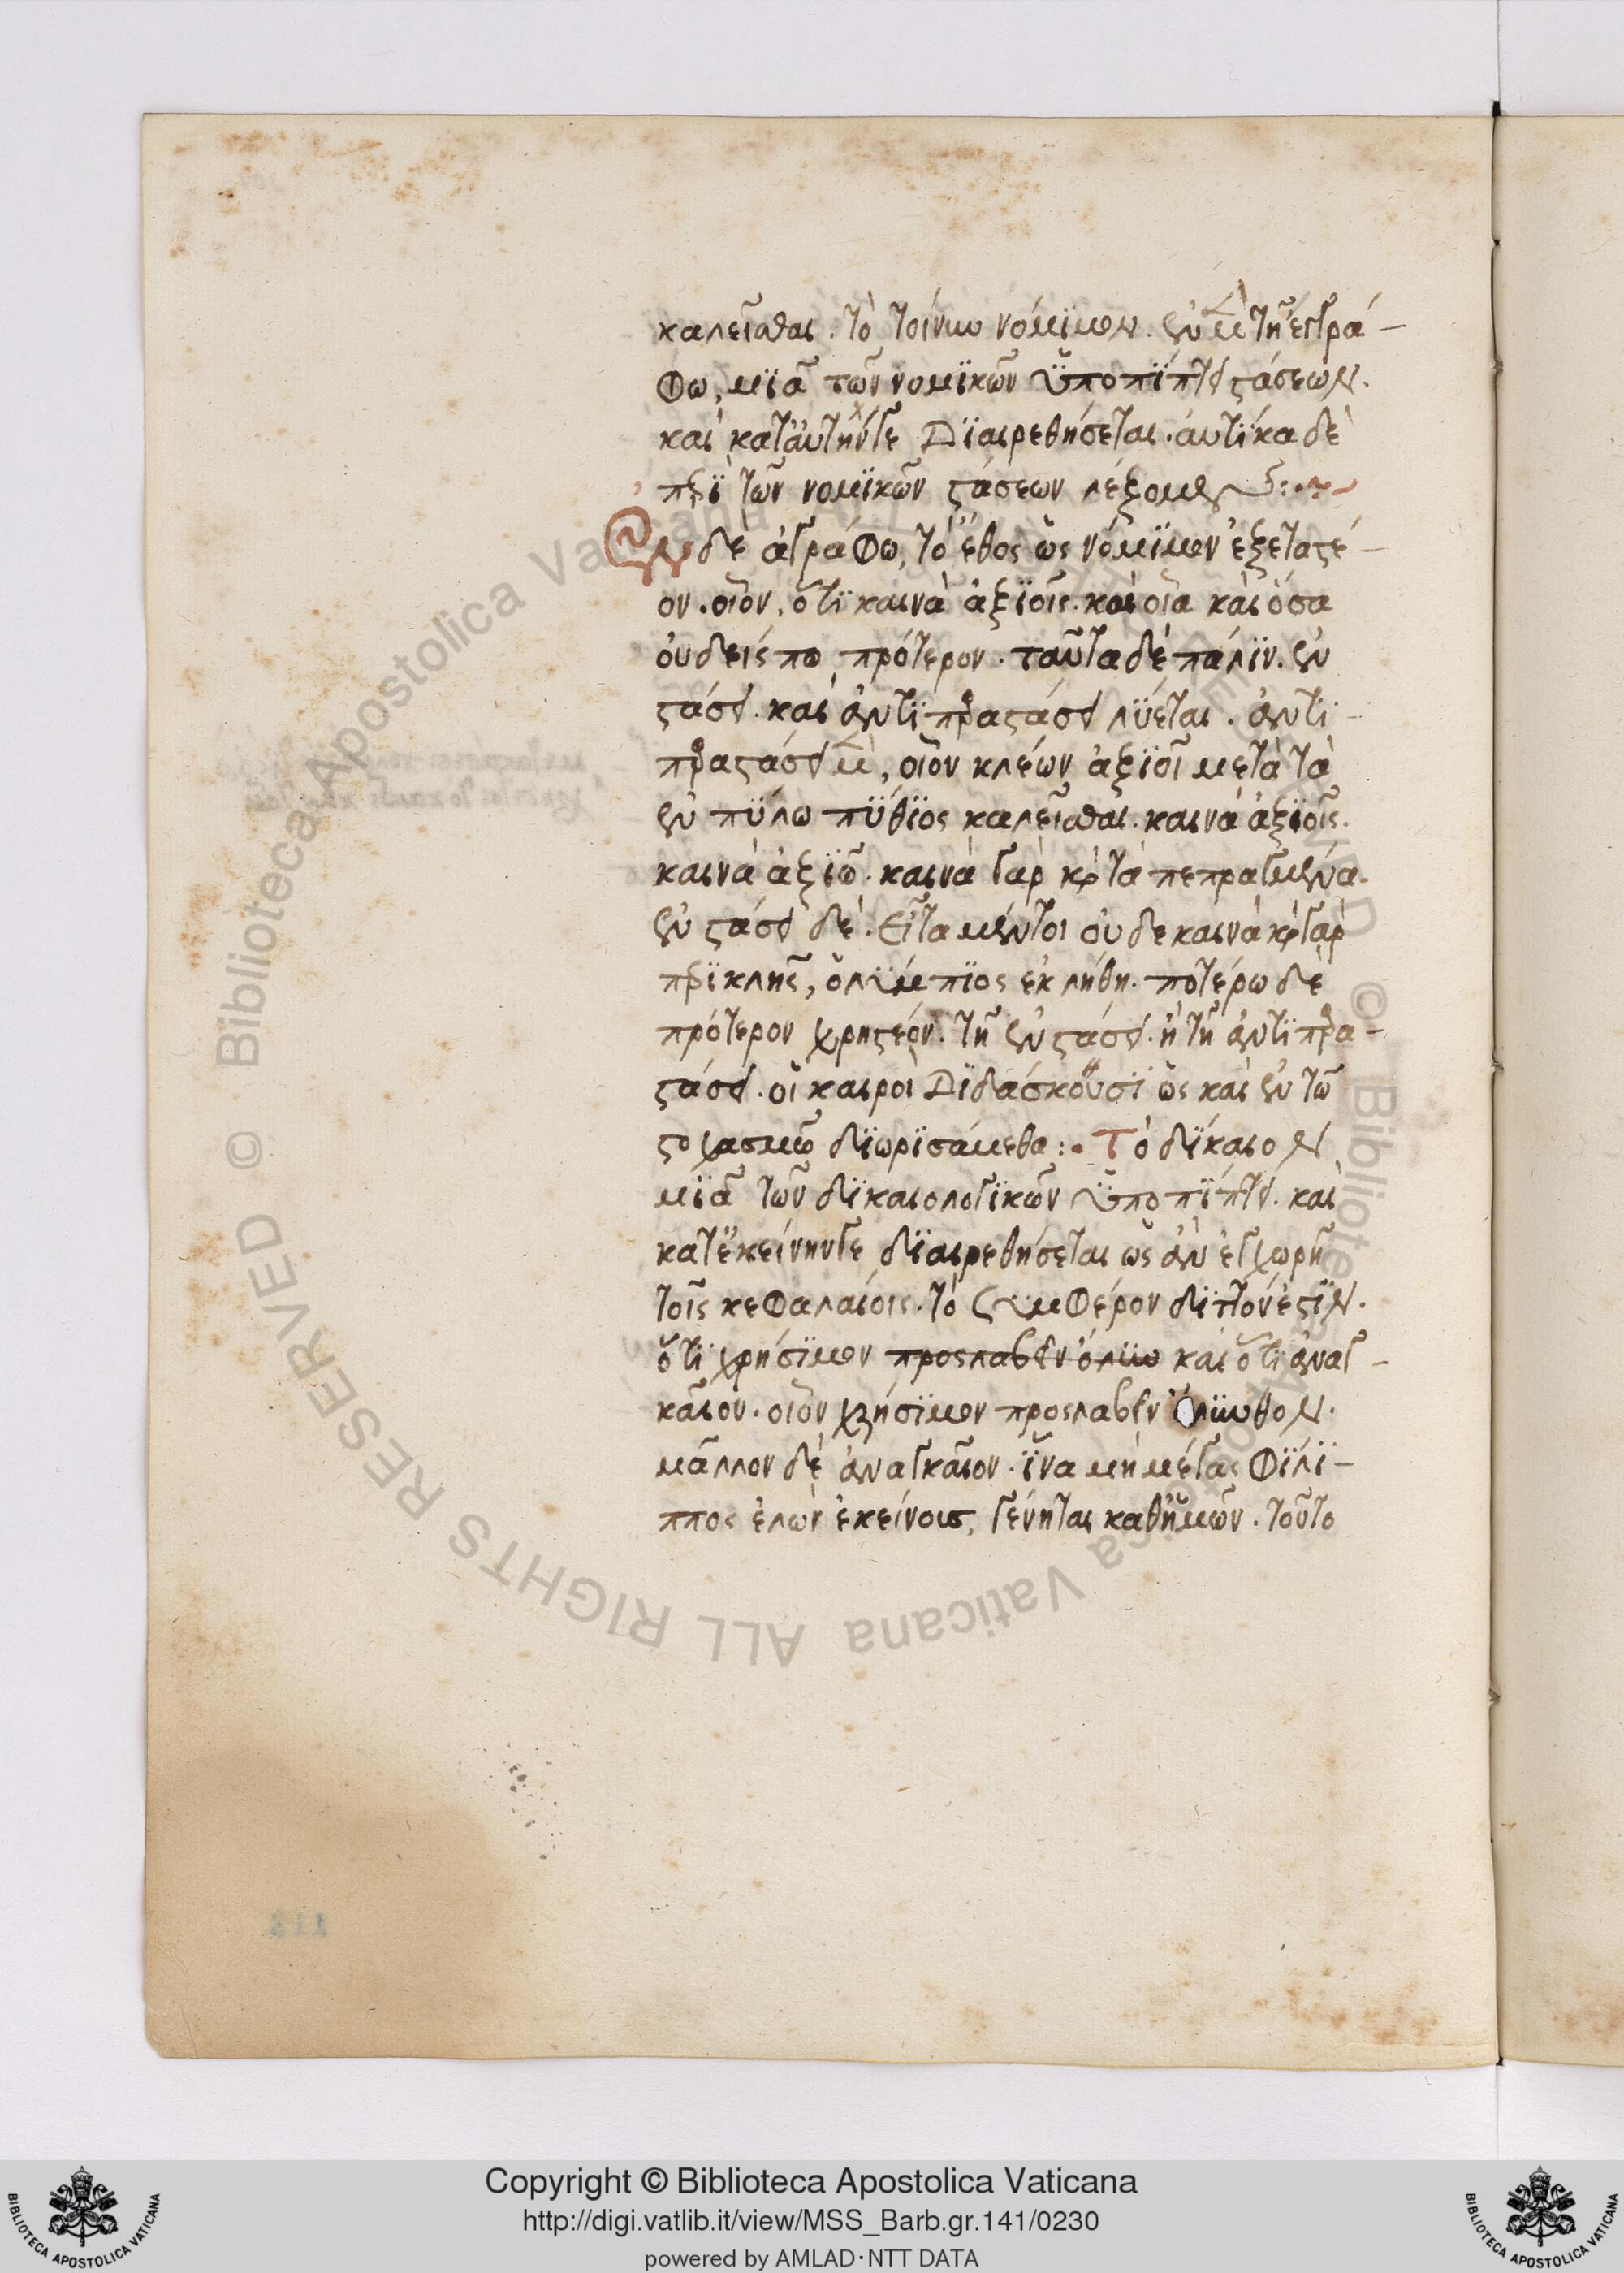 καλεῖσθαι. τὸ τοίνυν νόμϊμον. ἐν μ(ὲν) τῆ ἐγγρά-
φω, μϊᾶ τῶν νομϊκῶν ὑποπΐπτει στάσεων.
καὶ κατ' αὐτήν γε Δϊαιρεθήσεται. αὐτίκα δὲ
περὶ τῶν νομϊκῶν στάσεων λέξομεν :·~
Ἐν δὲ ἀγράφω, τὸ ἔθος ὡς νόμϊμον ἐξεταστέ-
ον. οἷον, ὅτϊ καινὰ ἀξϊοῖς. καὶ οἷα καὶ ὅσα
οὐδείς πω πρότερον. ταῦτα δὲ πάλϊν. ἐν
στάσει. καὶ ἀντϊπαραστάσει λΰεται. ἀντϊ-
παραστάσει μ(ὲν), οἷον κλέων ἀξϊοῖ μετὰ τὰ
ἐν πΰλω πΰθϊος καλεῖσθαι. καινὰ ἀξϊοῖς.
καινὰ ἀξϊῶ. καινὰ γὰρ κ(αὶ) τὰ πεπραγμένα.
ἐν στάσει δὲ. Εἶτα μέντοι οὐδε καινὰ κ(αὶ) γὰρ
περϊκλῆς, ὀλΰμπϊος ἐκλήθη. ποτέρω δὲ
πρότερον χρηστέον. τῆ ἐν στάσει. ἢ τῆ ἀντϊπαρα-
στάσει. οἱ καιροὶ Δϊδάσκουσϊ ὡς καὶ ἐν τῶ
στοχασμῶ δϊωρϊσάμεθα :· Τὸ δΐκαιον
μϊᾶ τῶν δϊκαιολογϊκῶν ὑποπΐπτει. καὶ
κατ' ἐκείνην γε δϊαιρεθήσεται ὡς ἂν ἐγχωρῆ
τοῖς κεφαλαίοις. τὸ συμφέρον δϊττόν ἐστϊν.
ὅτϊ χρήσϊμον προσλαβεῖν ὄλϋν καὶ ὅτϊ ἀναγ-
καῖον. οἷον χρήσϊμον προσλαβεῖν Ὄλϋνθον.
μᾶλλον δὲ ἀναγκαῖον. ἵνα μὴ μέγας φΐλϊ-
ππος ἑλὼν ἐκείνους, γένηται καθ' ἡμῶν. τοῦτο
Copyright © Biblioteca Apostolica Vaticana
http://digi.vatlib.it/view/MSS_Barb.gr.141/0230
powered by AMLAD·NTT DATA
BIBLIOTECA APOSTOLICA VATICANA
BIBLIOTECA APOSTOLICA VATICANA
© Biblioteca Apostolica Vaticana ALL RIGHTS RESERVED
© Biblioteca Apostolica Vaticana ALL RIGHTS RESERVED